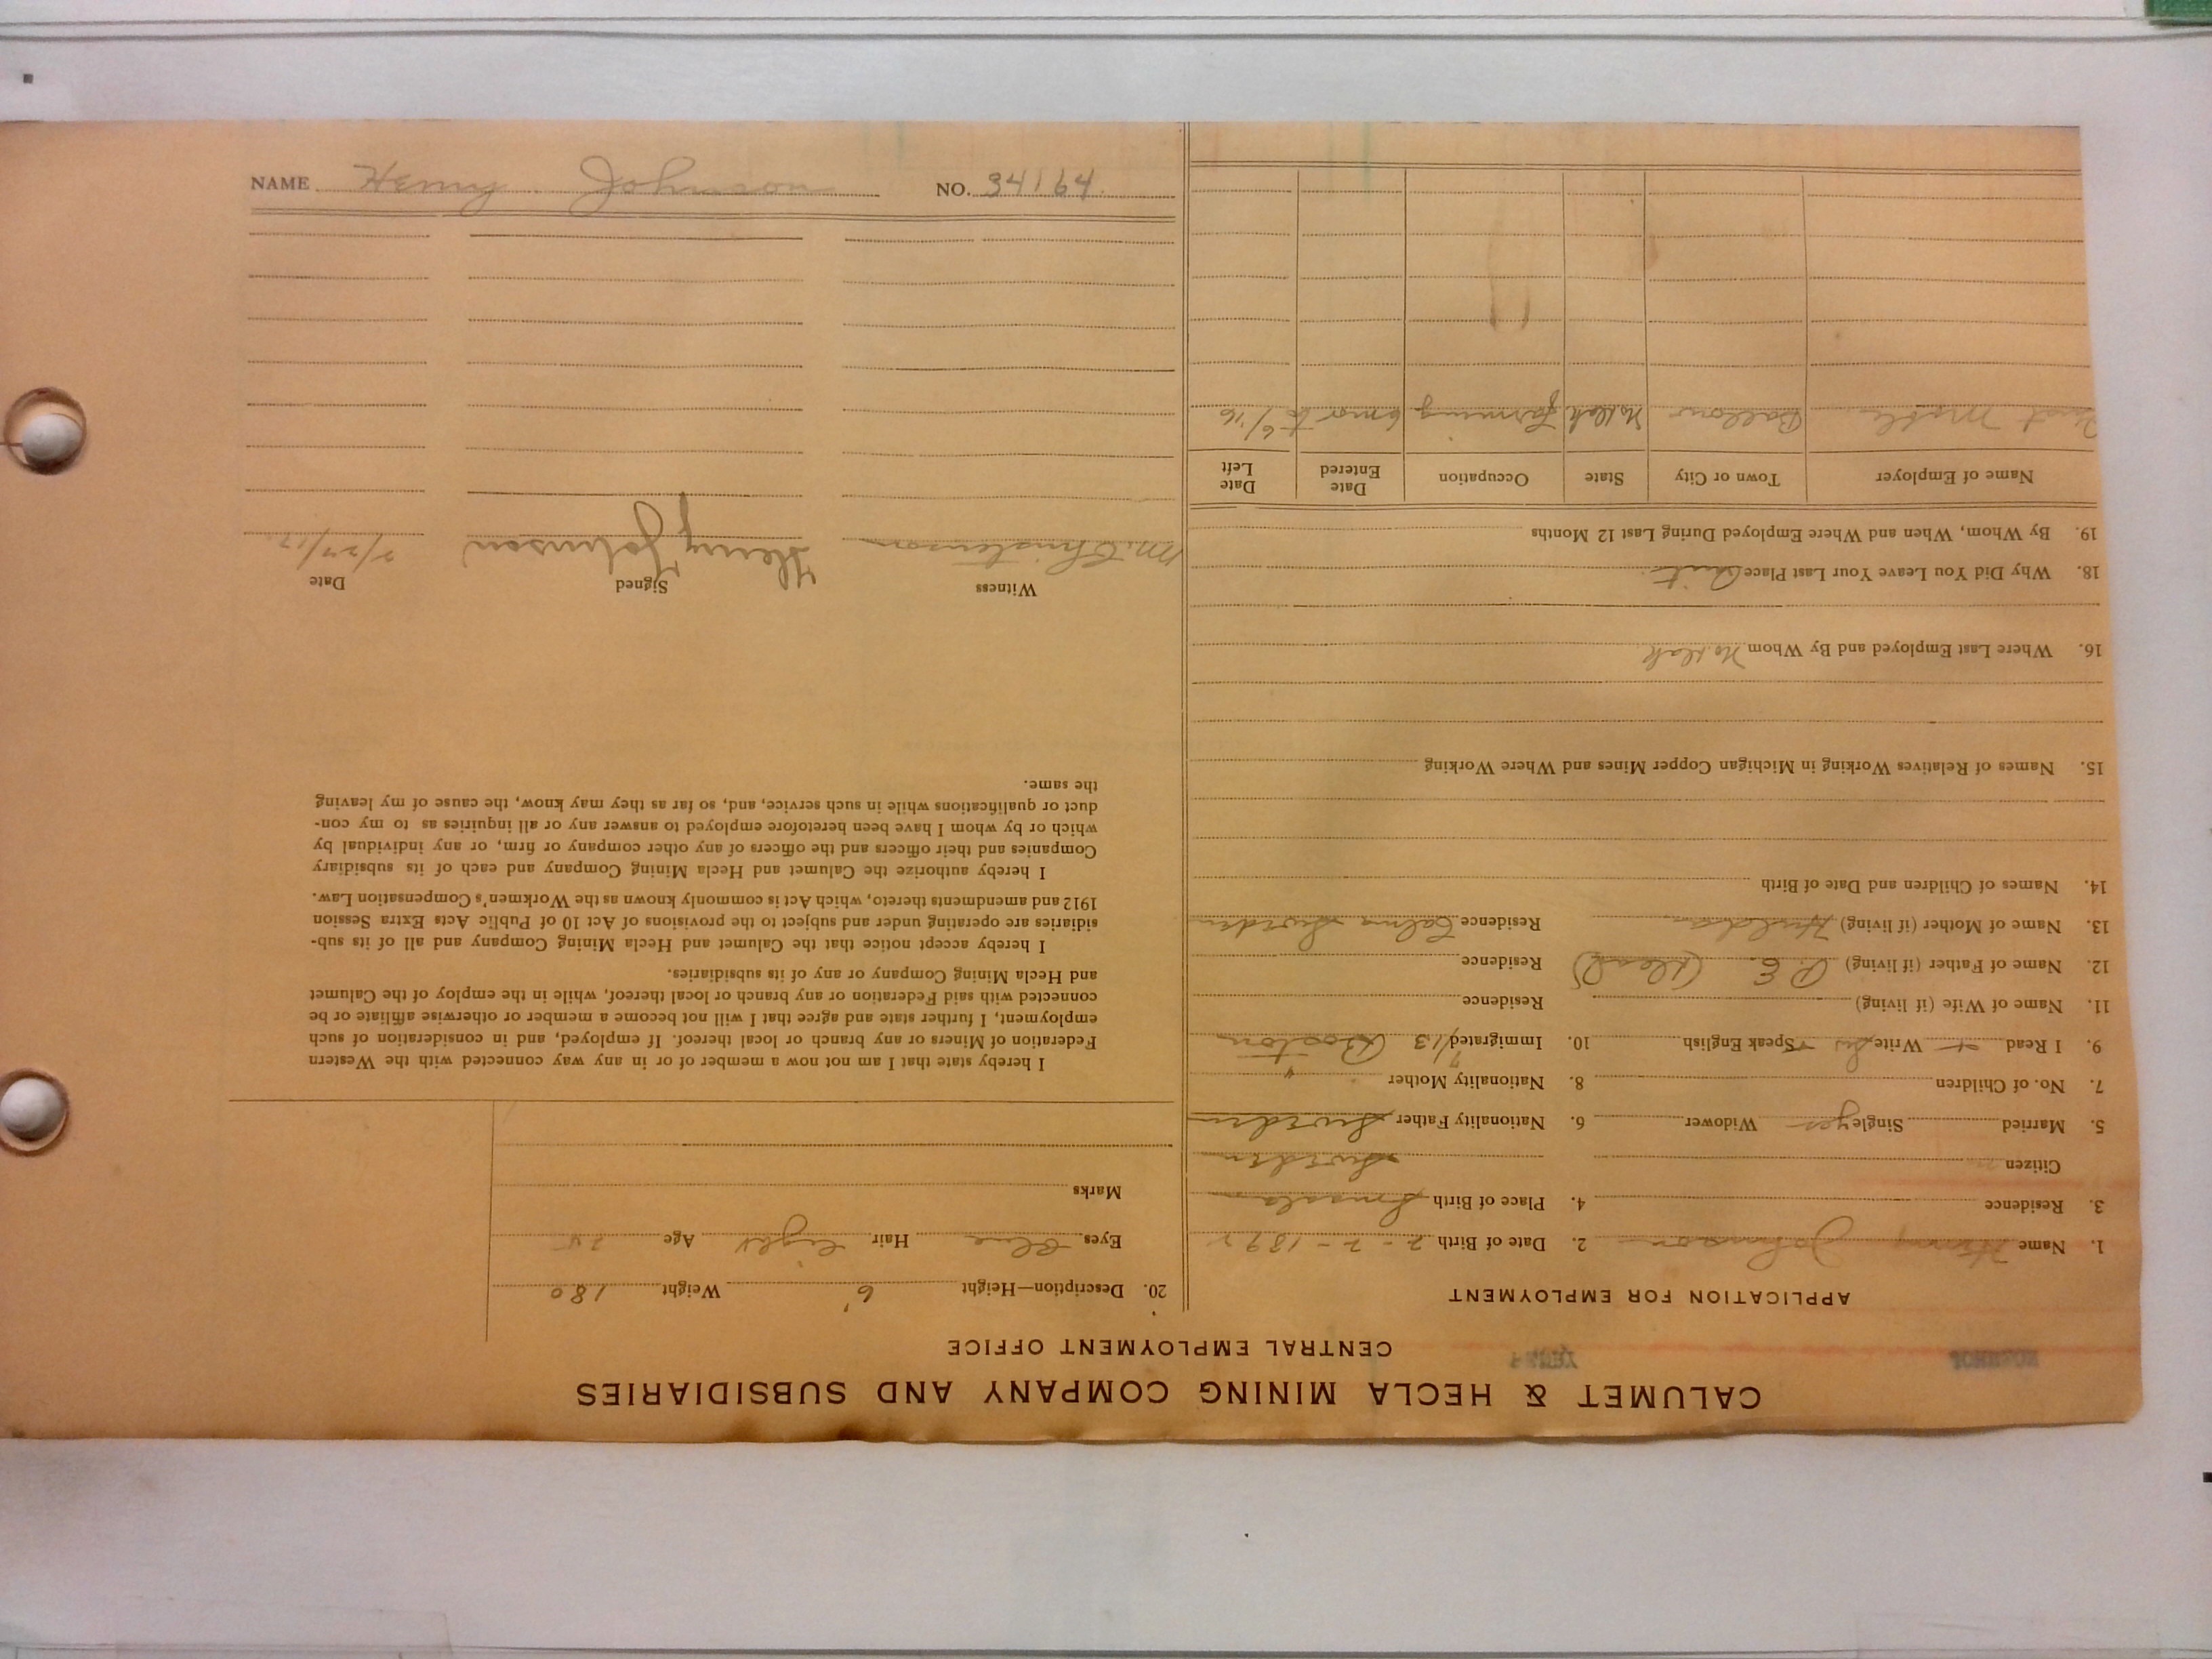 NAME Henry Johnson NO. 34164
CALUMET & HECLA MINING COMPANY AND SUBSIDIARIES
CENTRAL EMPLOYMENT OFFICE
APPLICATION FOR EMPLOYMENT
1. Name Henry Johnson 2. Date of Birth 2-2-1892
3. Residence 4. Place of Birth Smaala
Citizen Sweden
5. Married Single yes Widower 6. Nationality Father Sweden
7. No. of Children 8. Nationality Mother "
9. I Read Write Speak English 10. Immigrated 7/13 Boston
11. Name of Wife (if living) Residence
12. Name of Father (if living) P. E. (Dead) Residence
13. Name of Mother (if living) Hulda Residence Sweden
14. Names of Children and Date of Birth
15. Names of Relatives Working in Michigan Copper Mines and Where Working
16. Where Last Employed and By Whom No. Dak
18. Why Did You Leave Your Last Place Quit
19. By Whom, When and Where Employed During Last 12 Months
Name of Employer Town or City State Occupation Date Entered Date Left
Balfour No. Dak farming 6 mos to 6/16
20. Description—Height 6' Weight 180
Eyes Blue Hair Light Age 25
Marks
I hereby state that I am not now a member of or in any way connected with the Western
Federation of Miners or any branch or local thereof. If employed, and in consideration of such
employment, I further state and agree that I will not become a member or otherwise affiliate or be
connected with said Federation or any branch or local thereof, while in the employ of the Calumet
and Hecla Mining Company or any of its subsidiaries.
I hereby accept notice that the Calumet and Hecla Mining Company and all of its sub-
sidiaries are operating under and subject to the provisions of Act 10 of Public Acts Extra Session
1912 and amendments thereto, which Act is commonly known as the Workmen's Compensation Law.
I hereby authorize the Calumet and Hecla Mining Company and each of its subsidiary
Companies and their officers and the officers of any other company or firm, or any individual by
which or by whom I have been heretofore employed to answer any or all inquiries as to my con-
duct or qualifications while in such service, and, so far as they may know, the cause of my leaving
the same.
Witness Signed Date
M. Christenson Henry Johnson /17